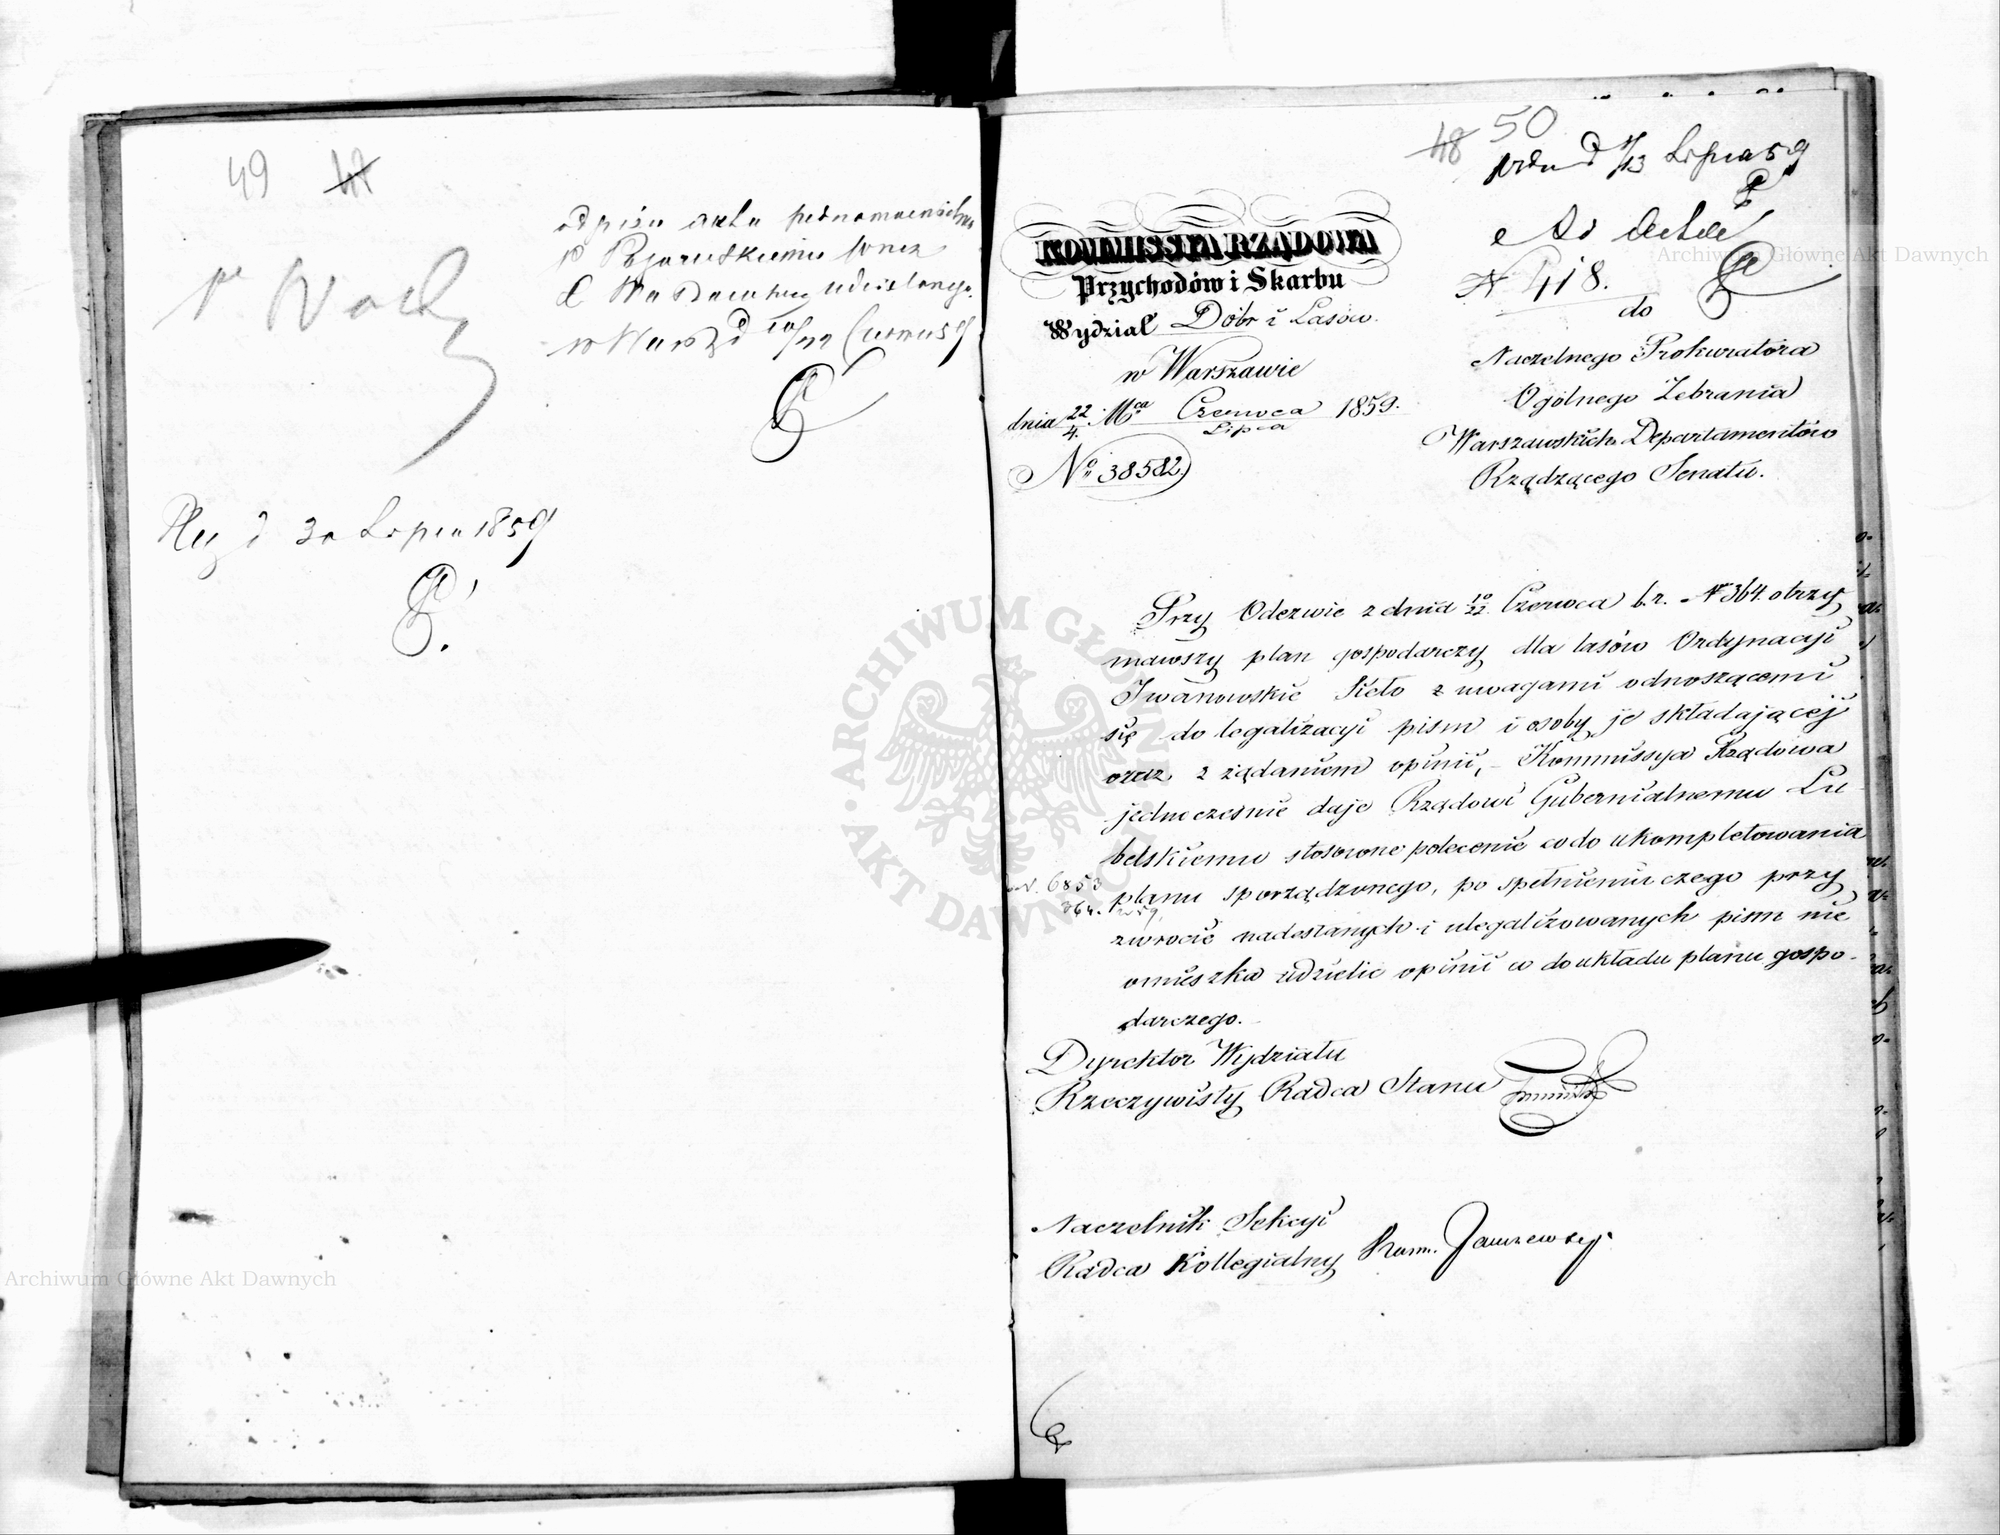 49
odpisu aktu pełnomocnictwa
P. przez
udzielonego
w d 10/22 Czerwca 59
d 30 Lipca 1859
48 50
d 1/13 Lipca 59
Do Aktów
N 418.
KOMMISSYA RZĄDOWA
Przychodów i Skarbu
Wydział Dóbr i Lasów.
w Warszawie
dnia 22/4. Mca Czerwca/Lipca 1859.
No 38582.
do
Naczelnego Prokuratora
Ogólnego Zebrania
Warszawskich Departamentów
Rządzącego Senatu.
Przy Odezwie z dnia 10/22. Czerwca b.r. Nr 364. otrzy
mawszy plan gospodarczy dla lasów Ordynacyi
Iwanowskie Sieło z uwagami odnoszącemi
się do legalizacyi pism i osoby je składającej
oraz z żądaniem opinii, – Kommissya Rządowa
jednocześnie daje Rządowi Gubernialnemu Lu
belskiemu stosowne polecenie co do ukompletowania
planu sporządzonego, po spełnieniu czego przy
zwrocie nadesłanych i ulegalizowanych pism nie
omieszka udzielić opinii co do układu planu gospo-
darczego.
6853
364.
Dyrektor Wydziału
Rzeczywisty Radca Stanu
Naczelnik Sekcyi
Radca Kollegialny
Archiwum Główne Akt Dawnych
Archiwum Główne Akt Dawnych
ARCHIWUM GŁÓWNE AKT DAWNYCH